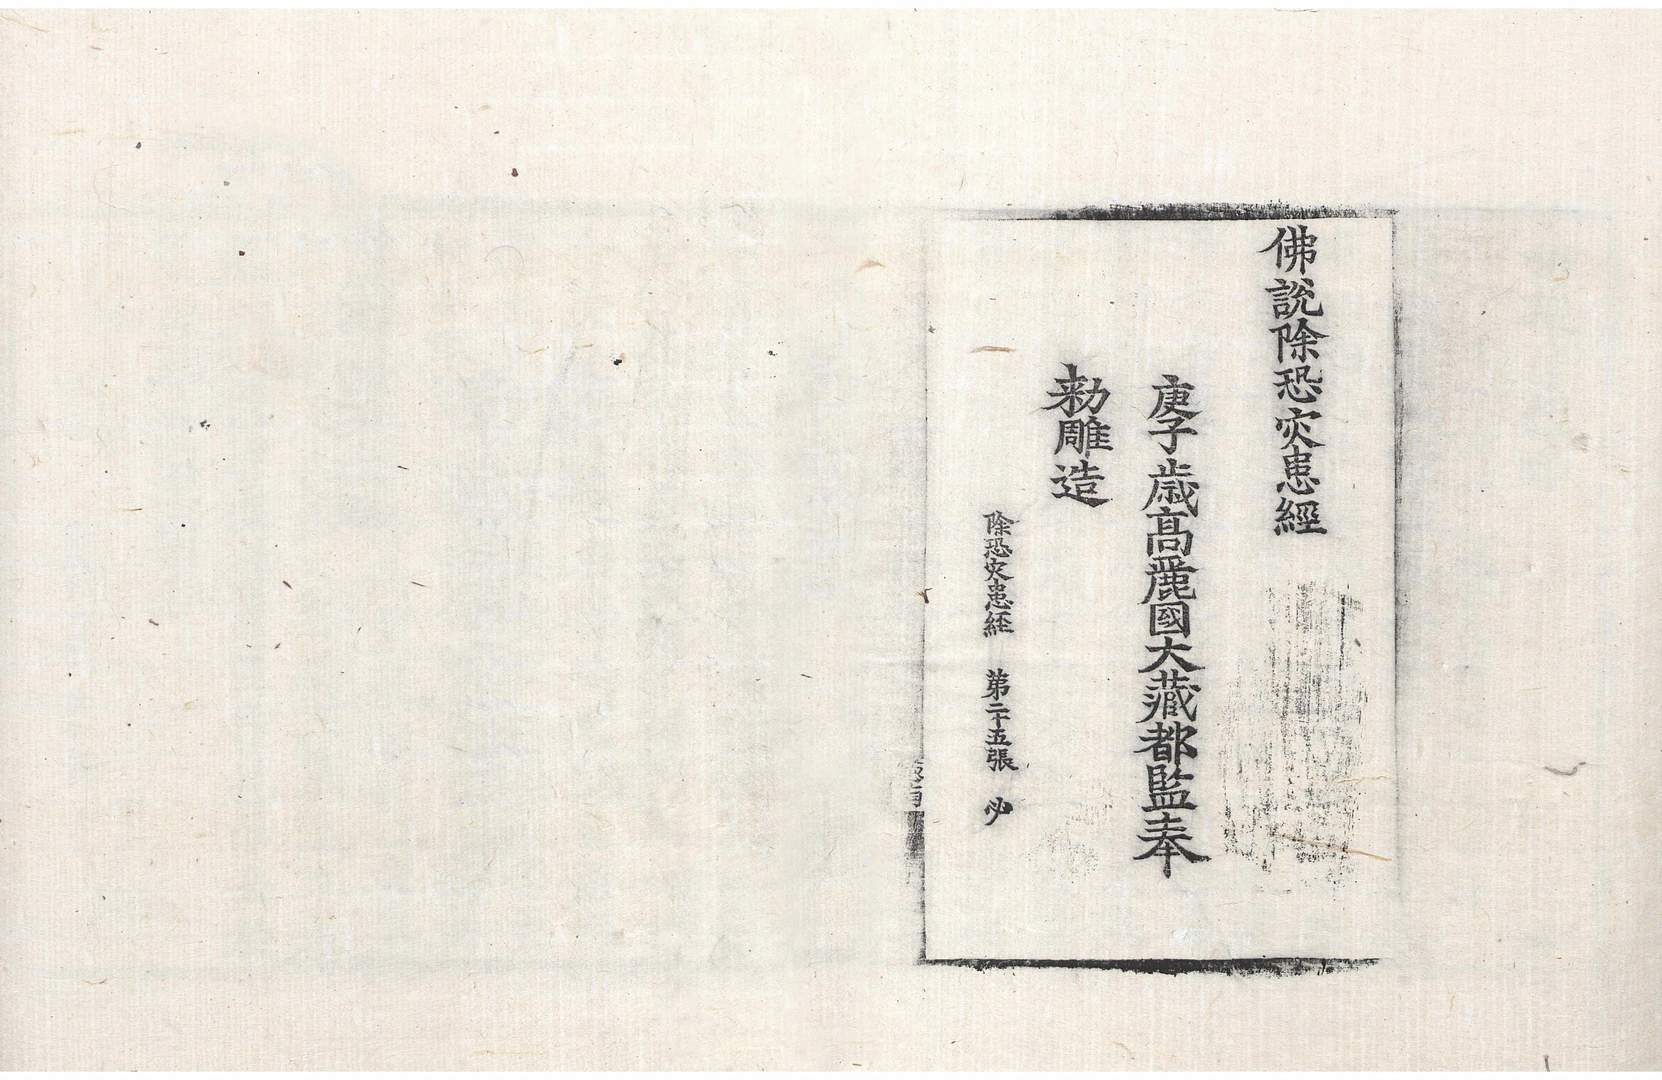 佛說除恐灾患經
庚子歲高麗國大藏都監奉
勑雕造
除恐灾患経　第二十五張　必